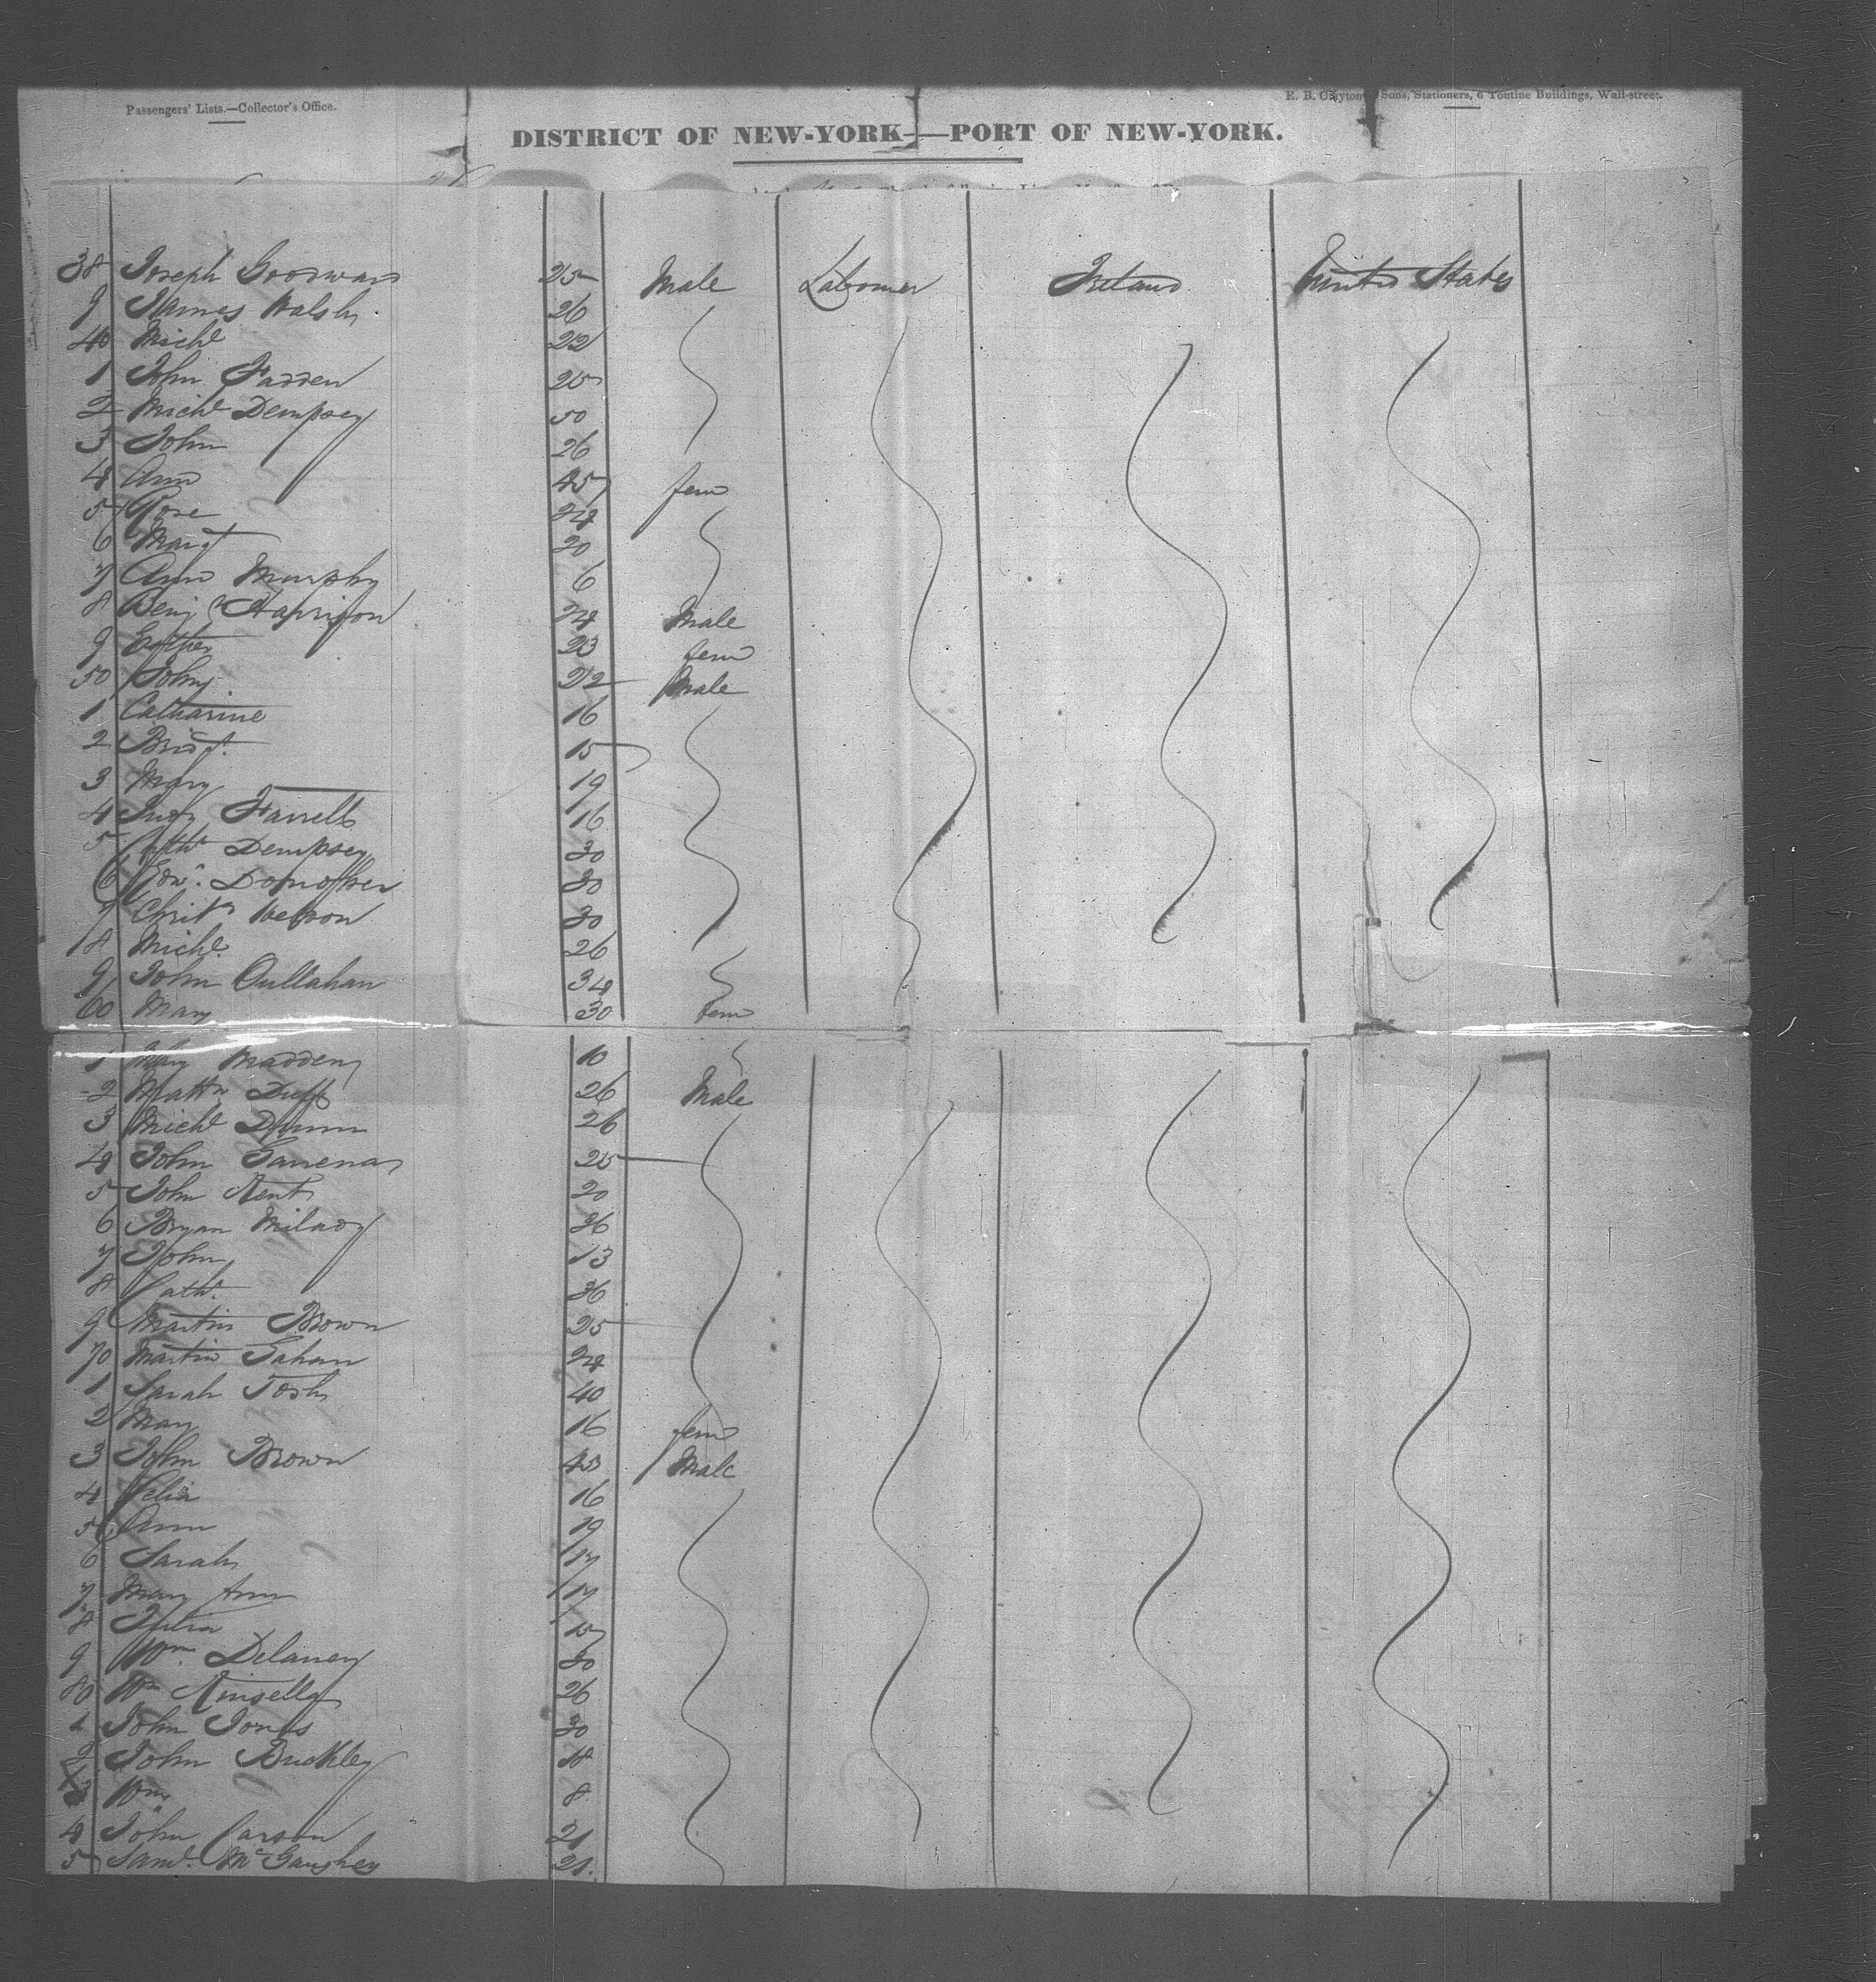 Passengers' Lists.—Collector's Office.
E. B. Clayton & Sons, Stationers, 6 Tontine Buildings, Wall-street.
DISTRICT OF NEW-YORK—PORT OF NEW-YORK.
38 Joseph 25 Male Labourer Ireland United States
9 James Walsh 26
40 Michl 22
1 John Fadden 25
2 Michl Dempsey 50
3 John 26
4 Ann 45 fem
5 Rose 24
6 Margt 20
7 Ann Murphy 6
8 Benj Harrison 24 Male
9 Esther 23 fem
50 John 22 Male
1 Catharine 16
2 Bridt. 15
3 Mary 19
4 Judy Farrell 16
5 Cathe Dempsey 30
6 Edwd. 30
7 Christr 30
8 Michl. 26
9 John Cullahan 34
60 Mary 30 fem
1 Mary Madden 10
2 Mattw Duff 26 Male
3 Michl Dunn 26
4 John 25
5 John Kent 20
6 Bryan 36
7 John 13
8 Cath. 36
9 Martin Brown 25
70 Martin Gahan 24
1 Sarah Tosh 40
2 Mary 16 fem
3 John Brown 45 Male
4 Celia 16
5 Ann 19
6 Sarah 17
7 Mary Ann 17
8 Julia 15
9 Wm. Delaney 30
80 Wm Kinsella 26
1 John Jones 30
2 John Buckley 18
3 Wm 8
4 John Carson 21
5 Saml. McGaughey 21.